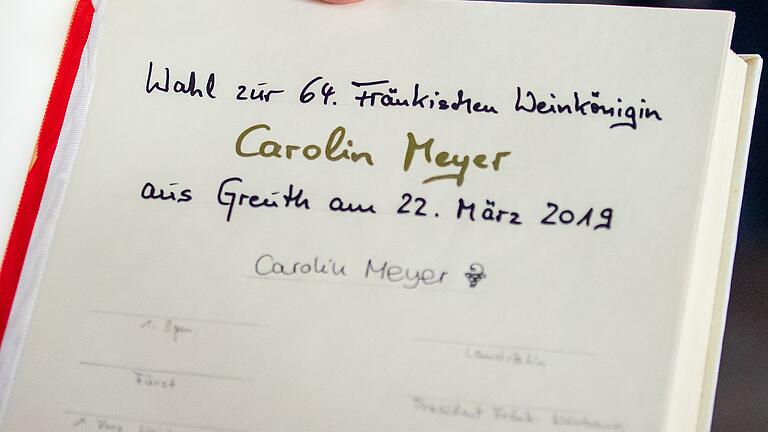 Wahl zur 64. Fränkischen Weinkönigin
Carolin Meyer
aus Greuth am 22. März 2019
Carolin Meyer
1. Bgm.
Landrätin
Fürst
Präsident Fränk. Weinbauv.
1.